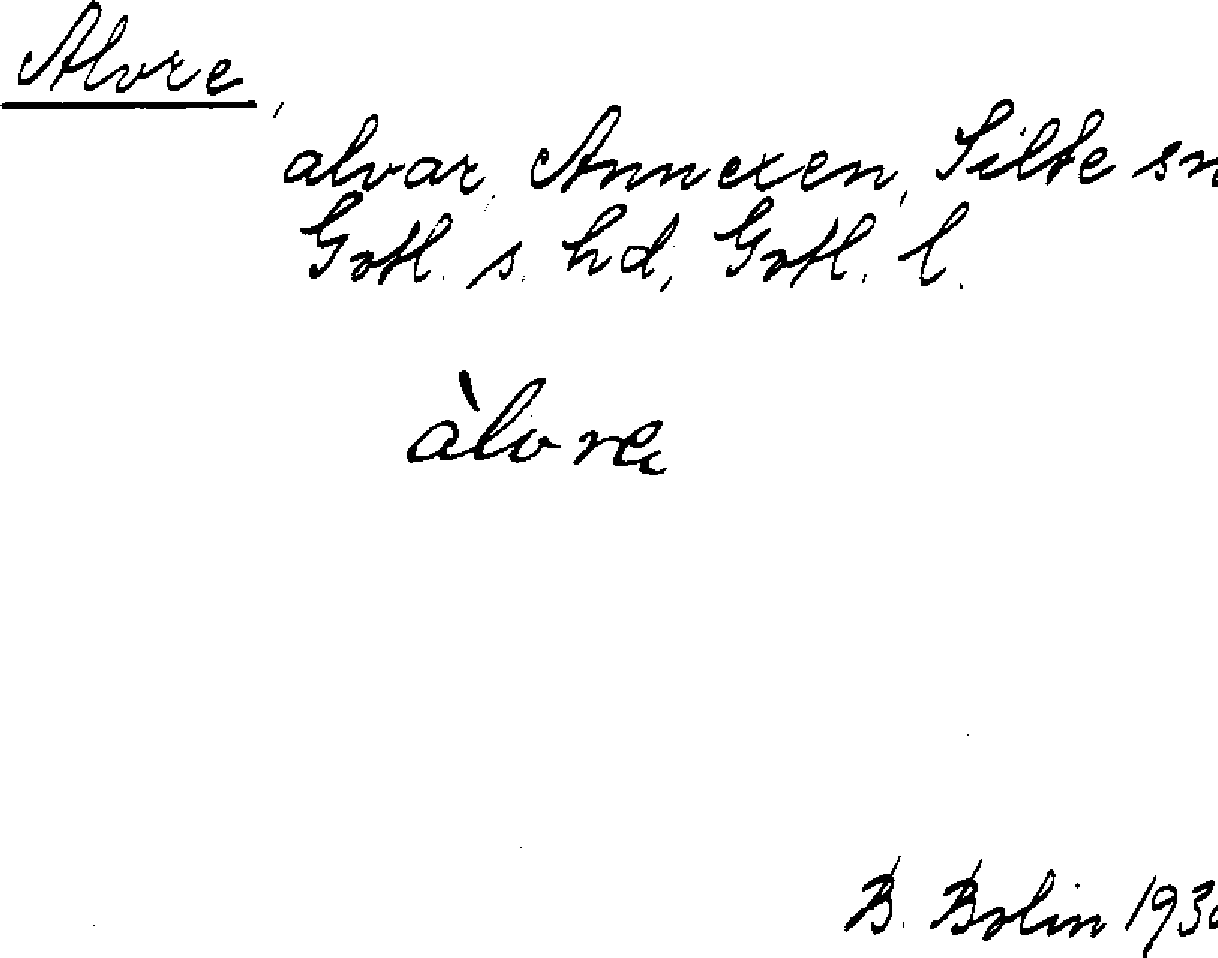 Alvre,
alvar, Annexen, Silte sn
Gotl. s. hd, Gotl. l.
àlvre
B. Bolin